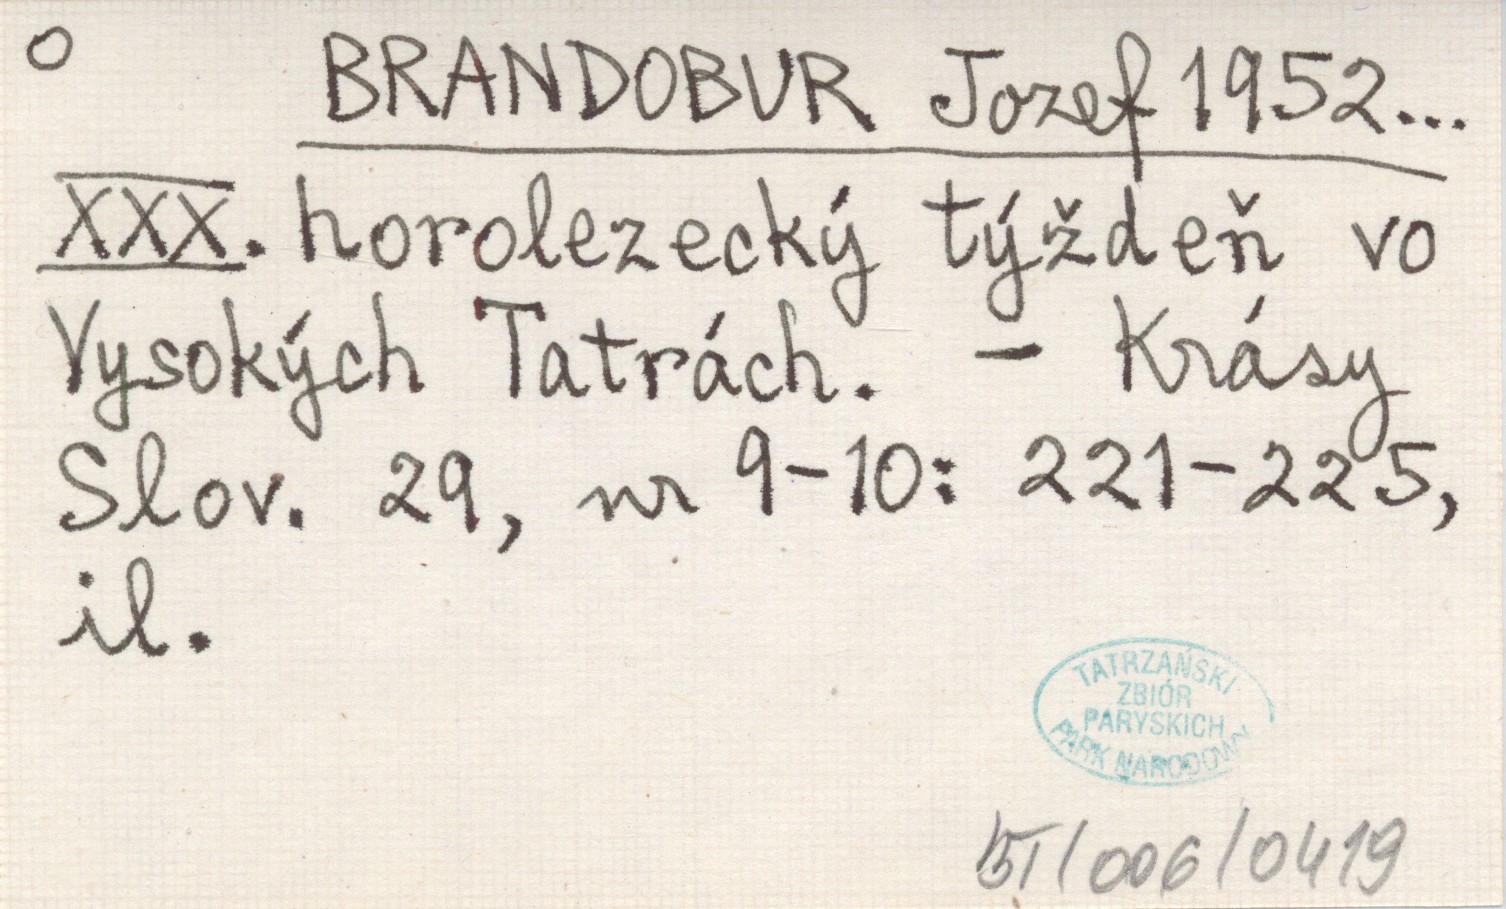 o
BRANDOBUR Jozef 1952...
XXX. horolezecký týždeň vo
Vysokých Tatrách. – Krásy
Slov. 29, nr 9-10: 221-225,
il.
TATRZAŃSKI
ZBIÓR
PARYSKICH
PARK NARODOWY
/006/0419